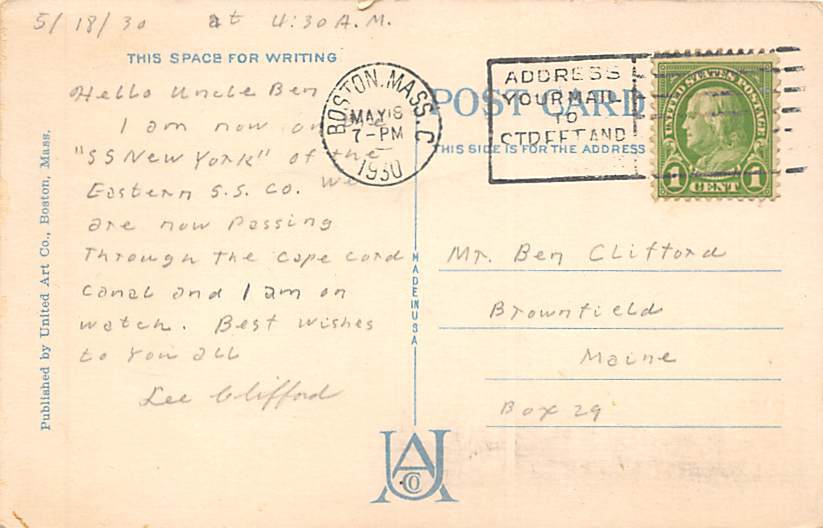 5/18/30 at 4:30 A.M.
THIS SPACE FOR WRITING
Hello Uncle Ben
I am now on
"SS New York" of the
Eastern S.S. Co. We
are now Passing
Through the Cape Cord
Canal and I am on
watch. Best wishes
to you all
Lee Clifford
Published by United Art Co., Boston, Mass.
MADE IN USA
BOSTON, MASS. C
MAY 18
7-PM
1930
ADDRESS
YOUR MAIL
TO
STREET AND
POST CARD
THIS SIDE IS FOR THE ADDRESS
UNITED STATES POSTAGE
1 CENT 1
Mr. Ben Clifford
Brownfield
Maine
Box 29
UACo